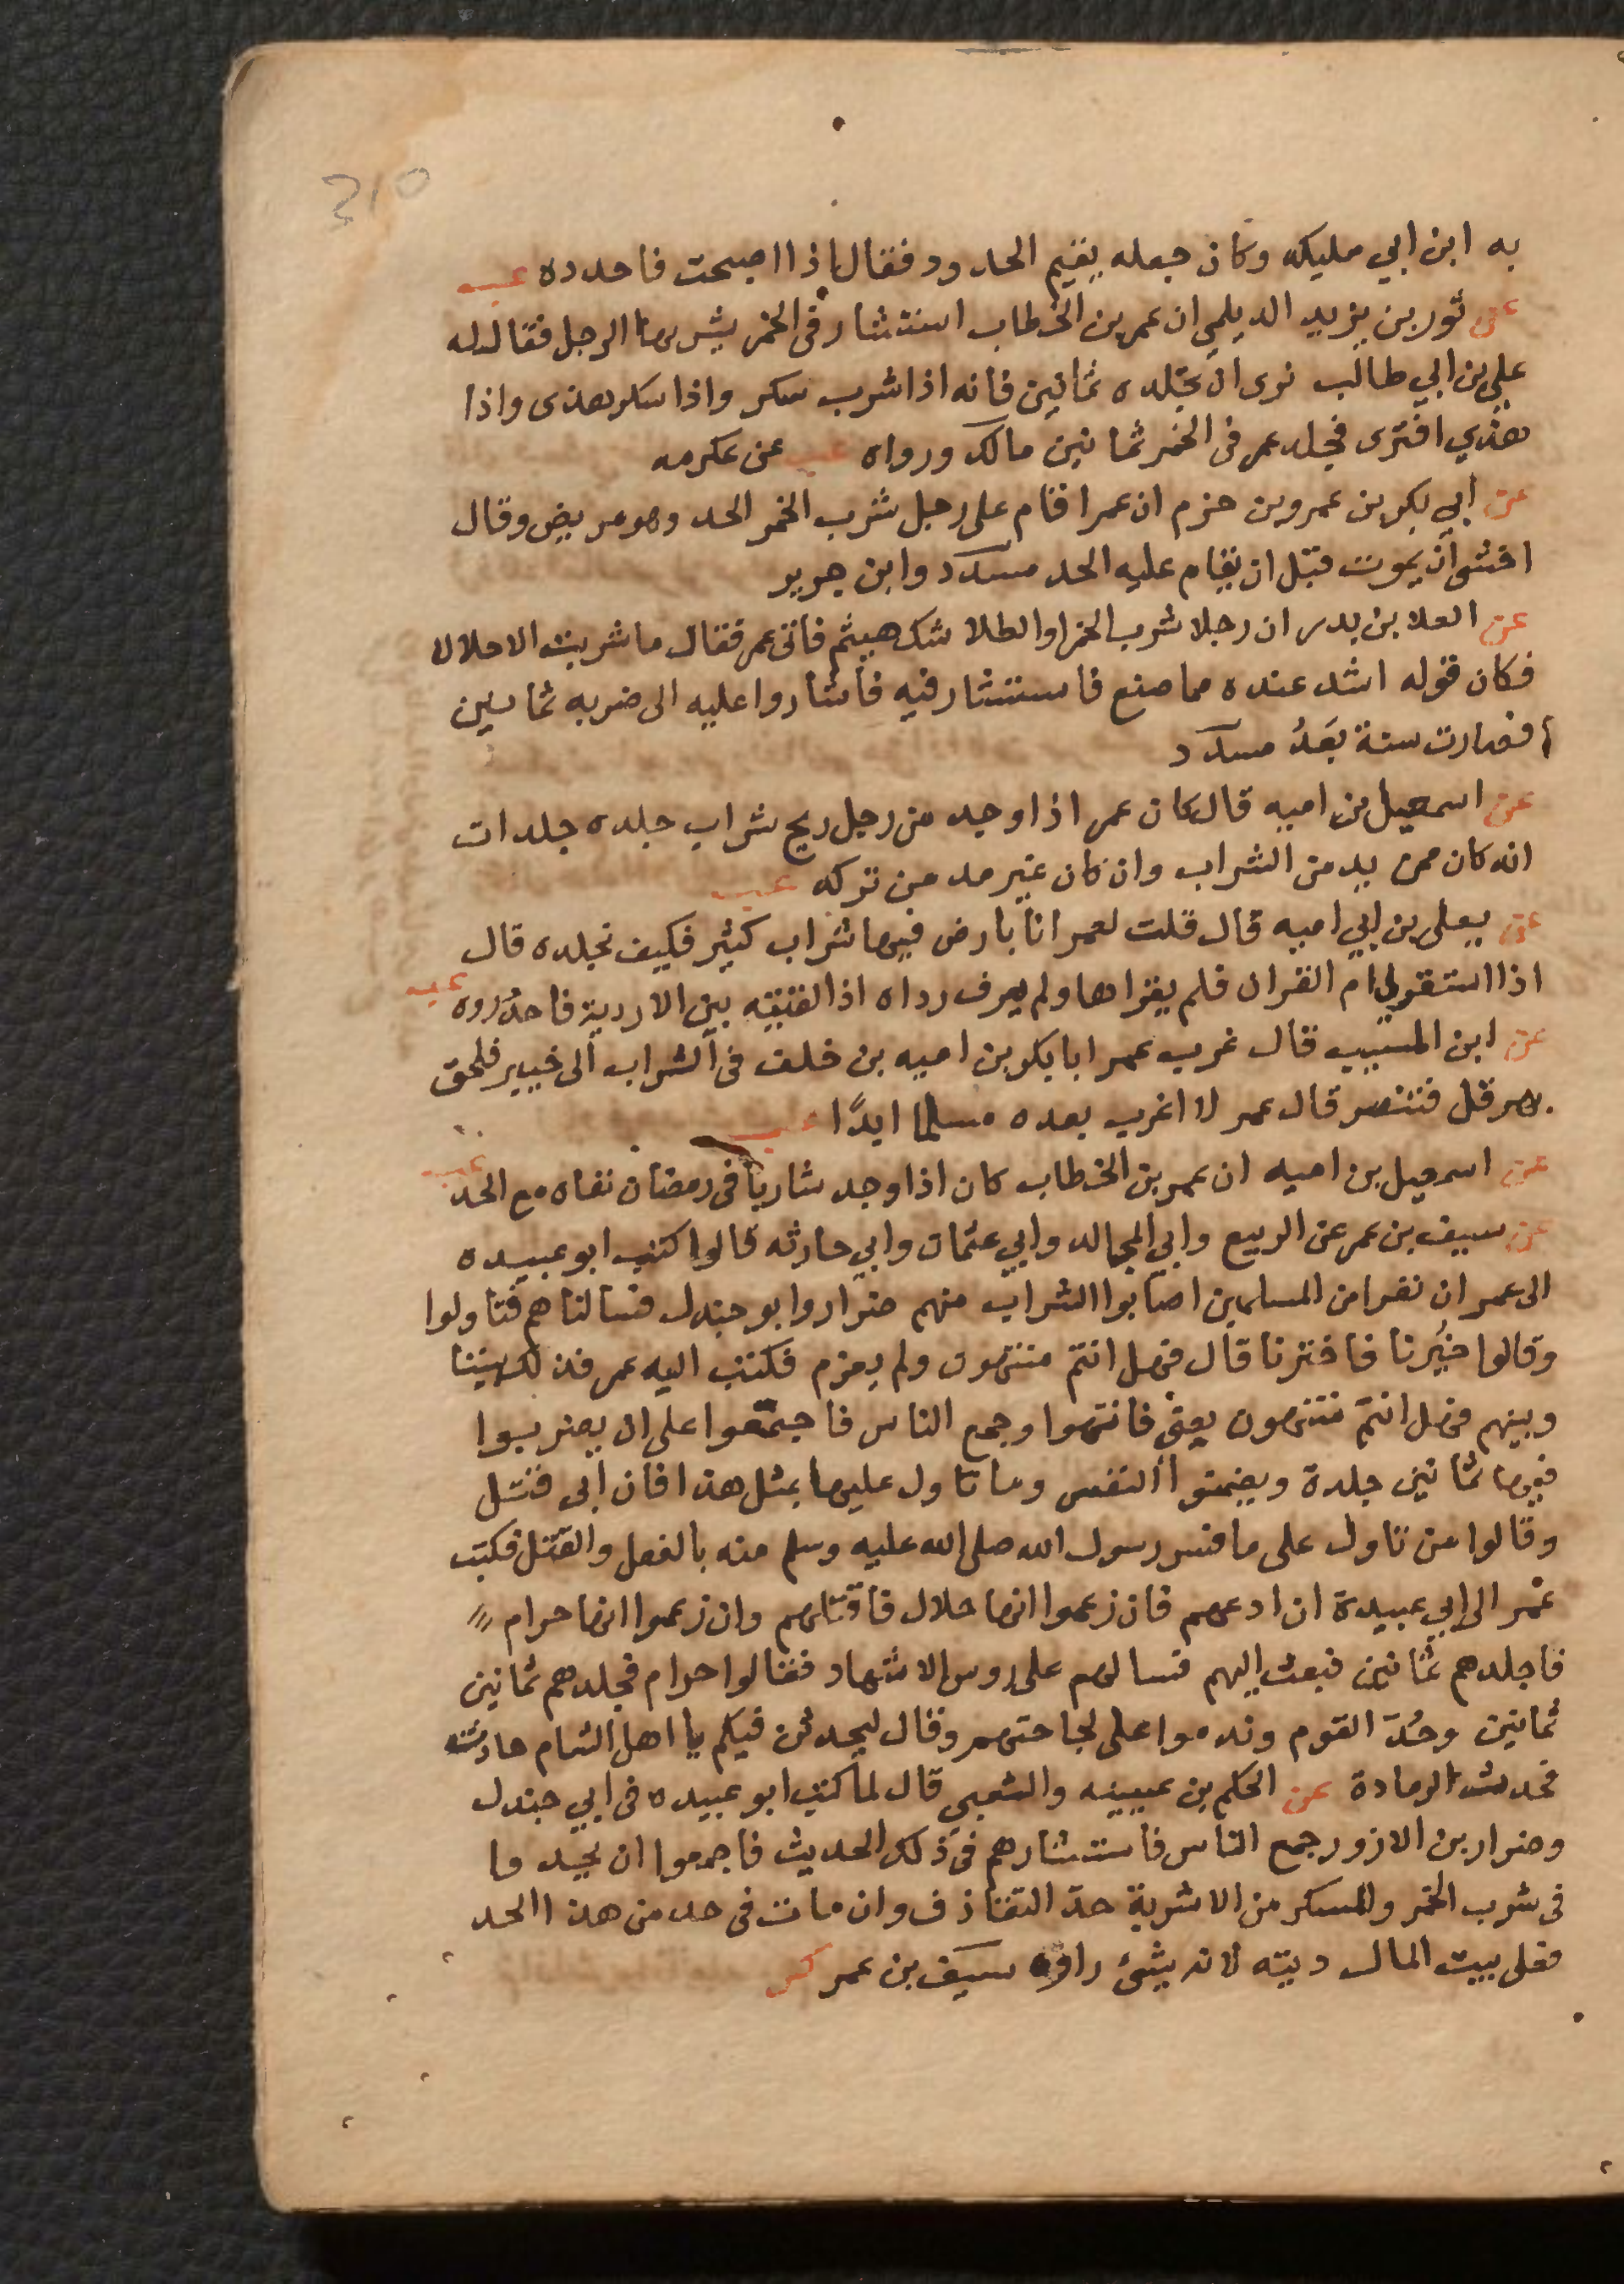 310
به ابن ابي مليكه وكان جعله يقيم الحدود فقال اذا اصبحت فاحدده عب
عن ثور بن يزيد الديلمي ان عمر بن الخطاب استشار في الخمر يشربها الرجل فقال له
علي بن ابي طالب نرى ان نجلده ثمانين فانه اذا شرب سكر واذا سكر هذى واذا
هذي افترى فجلد عمر في الخمر ثمانين مالك ورواه عب عن عكرمه
عن ابي بكر بن عمرو بن حزم ان عمر اقام على رجل شرب الخمر الحد وهو مريض وقال
اخشى ان يموت قبل ان يقام عليه الحد مسدد وابن جرير
عن العلا بن بدر ان رجلا شرب الخمر او الطلا شك هيثم فاتى عمر فقال ما شربت الا حلالا
فكان قوله اشد عنده مما صنع فاستشار فيه فاشاروا عليه الى ضربه ثمانين
فصارت سنة بَعدُ مسدد
عن اسمعيل بن اميه قال كان عمر اذا وجد من رجل ريح شراب جلده جلدات
انه كان ممن يدمن الشراب وان كان غير مدمن تركه عب
عن يعلى بن ابي اميه قال قلت لعمر انا بارض فيها شراب كثير فكيف نجلده قال
اذا استقرئ ام القران فلم يقراها ولم يعرف رداه اذا لقيته بين الاردية فاحدُدوه عب
عن ابن المسيب قال غرب عمر ابا بكر بن اميه بن خلف في الشراب الى خيبر فلحق
بهرقل فتنصر قال عمر لا اغرب بعده مسلما ابدًا عب
عن اسمعيل بن اميه ان عمر بن الخطاب كان اذا وجد شاربا في رمضان نفاه مع الحد عب
عن سيف بن عمر عن الربيع وابي المجالد وابي عثمان وابي حارثه قالوا كتب ابو عبيده
الى عمر ان نفرا من المسلمين اصابوا الشراب منهم ضرار وابو جندل فسالناهم فتاولوا
وقالوا خُيّرنا فاخترنا قال فهل انتم منتهون ولم يعزم فكتب اليه عمر فذلك بيننا
وبينهم فهل انتم منتهون يعني فانتهوا وجمع الناس فاجتمعوا على ان يضربوا
فيها ثمانين جلدة ويضمنوا النفس ومن تاول عليها بمثل هذا فان ابى قتل
وقالوا من تاول على ما فسر رسول الله صلى الله عليه وسلم منه بالفعل والقتل فكتب
عمر الى ابي عبيدة ان ادعهم فان زعموا انها حلال فاقتلهم وان زعموا انها حرام
فاجلدهم ثمانين فبعث اليهم فسالهم على روس الاشهاد فقالوا حرام فجلدهم ثمانين
ثمانين وحُدّ القوم وندموا على لجاجتهم وقال ليحدثن فيكم يا اهل الشام حادث
فحدثت الرمادة عن الحكم بن عيينه والشعبي قال لما كتب ابو عبيده في ابي جندل
وضرار بن الازور جمع الناس فاستشارهم في ذلك الحديث فاجمعوا ان يحدوا
في شرب الخمر والمسكر من الاشربة حدّ القاذف وان مات في حد من هذا الحد
فعلى بيت المال ديته لانه شئ راوه سيف بن عمر كر